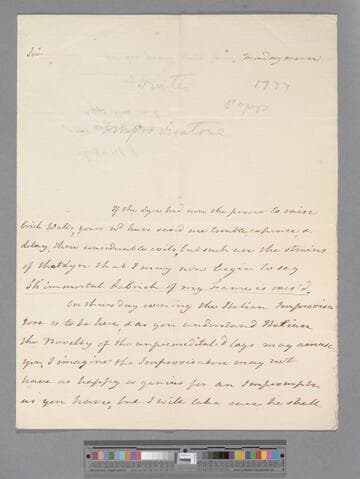 Sir
Monday morn
1777
Improvisatore
If the Lyre had now the power to raise
brick Walls, yours wd have saved me trouble, expence, &
delay, three considerable evils, but such are the strains
of that Lyre that I may now begin to say
Th' immortal Fabrick of my name is rais'd.
On thursday evening the Italian Improvisa
tore is to be here, & as you understand Italian
the Novelty of the unpremeditated lays may amuse
you, I imagine the Improvisatore may not
have as happy a genius for an Impromptu
as you have, but I will take care he shall